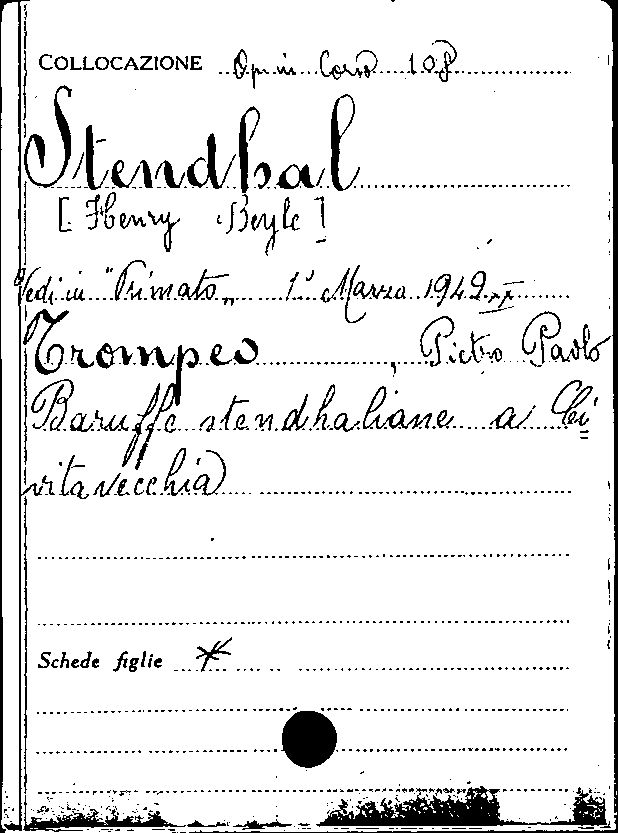 COLLOCAZIONE Op. in Corso 108
Stendhal
[Henry Beyle]
Vedi in "Primato„ 1° Marzo 1942 XX
Trompeo, Pietro Paolo
Baruffe stendhaliane a Ci
vitavecchia
Schede figlie *